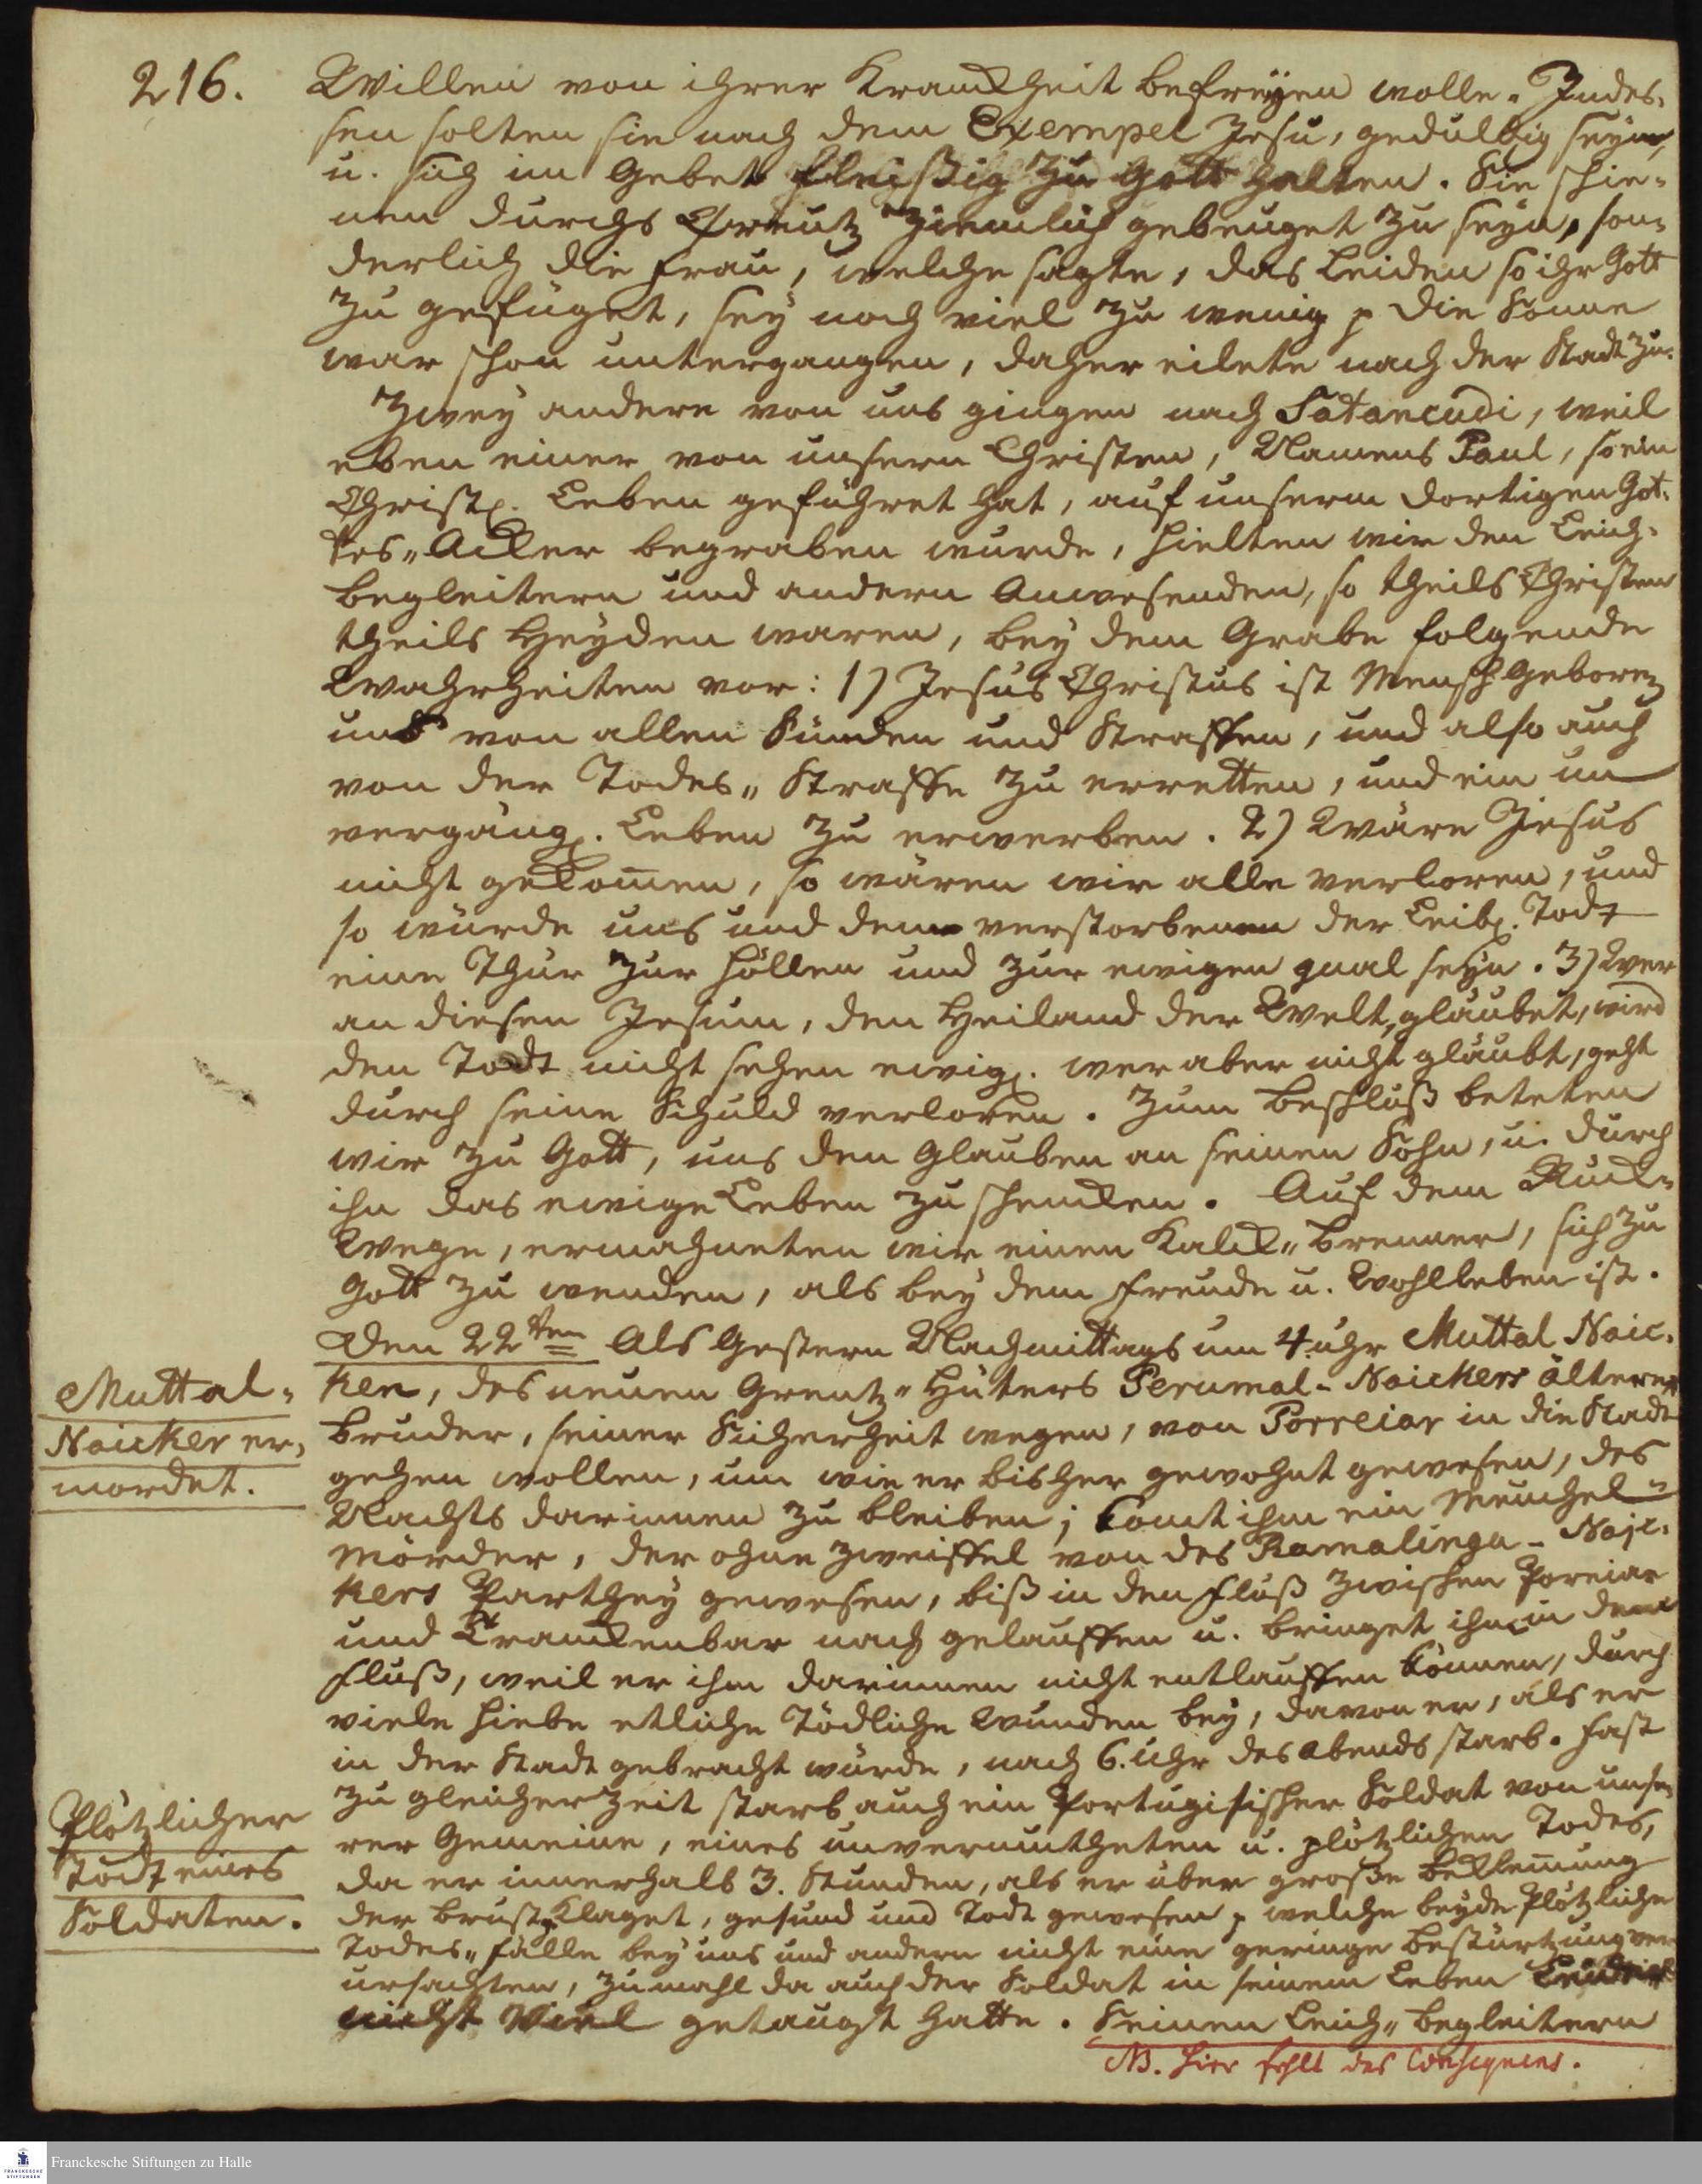 216.
Willen von ihrer Kranckheit befreyen wolle. Indes-
sen solten sie nach dem Exempel Jesu, geduldig seyn,
u. sich im Gebet fleißig zu Gott halten. Sie schie-
nen durchs Creutz ziemlich gebeuget zu seyn, son-
derlich die Frau, welche sagte, das Leiden so ihr Gott
zu gefüget, sey noch viel zu wenig p die Sonne
war schon untergangen, daher eilete nach der Stadt zu.
Zwey andere von uns gingen nach Satancudi, weil
eben einer von unsern Christen, Namens Paul, so ein
Christl. Leben geführet hat, auf unserm dortigen Got-
tes-Acker begraben wurde, hielten wir den Leich-
begleitern und andern Anwesenden, so theils Christen
theils Heyden waren, bey dem Grabe folgende
Wahrheiten vor: 1) Jesus Christus ist Mensch geboren
uns von allen Sünden und Straffen, und also auch
von der Todes-Straffe zu erretten, und ein un
vergängl. Leben zu erwerben. 2) Wäre Jesus
nicht gekommen, so wären wir alle verloren, und
so würde uns und dem verstorbenen der Leibl. Todt
eine Thür zur Höllen und zur ewigen qual seyn. 3) Wer
an diesen Jesum, den Heiland der Welt, gläubet, wird
den Todt nicht sehen ewigl. wer aber nicht gläubt, geht
durch seine Schuld verloren. Zum Beschluß beteten
wir zu Gott, uns den Glauben an seinen Sohn, u. durch
ihn das ewige Leben zu schencken. Auf dem Rück-
Wege, ermahneten wir einen Kalck-Brenner, sich zu
Gott zu wenden, als bey dem Freude u. Wohlleben ist.
Den 22ten Als Gestern Nachmittags um 4. uhr Muttal Naic-
ken, des neuen Grentz-Hüters Perumal-Naickers älterer
Bruder, seiner Sicherheit wegen, von Porreiar in die Stadt
gehen wollen, um wie er bisher gewohnt gewesen, des
Nachts darinnen zu bleiben; komt ihm ein Meuchel-
mörder, der ohne zweiffel von des Ramalinga-Naic-
kers Parthey gewesen, biß in den Fluß zwischen Poreiar
und Tranckenbar nach gelauffen u. bringet ihm in dem
Fluß, weil er ihm darinnen nicht entlauffen können, durch
viele Hiebe etliche tödliche Wunden bey, davon er, als er
in der Stadt gebracht würde, nach 6. Uhr des Abends starb. Fast
zu gleicher Zeit starb auch ein Portugisischer Soldat von unse-
rer Gemeine, eines unvermutheten u. plötzlichen Todes,
da er innerhalb 3. Stunden, als er über große Beklemmung
der Brust klaget, gesund und Todt gewesen p welche beyde Plötzliche
Todes-fälle bey uns und andern nicht eine geringe Bestürtzung ver
ursachten, zumahl da auch der Soldat in seinem Leben
nicht viel getaugt hatte. Seinen Leich-Begleitern
NB. hier fehlt das Consequens.
Muttal-
Naicker er-
mordet.
Plötzlicher
Todt eines
Soldaten.
Franckesche Stiftungen zu Halle